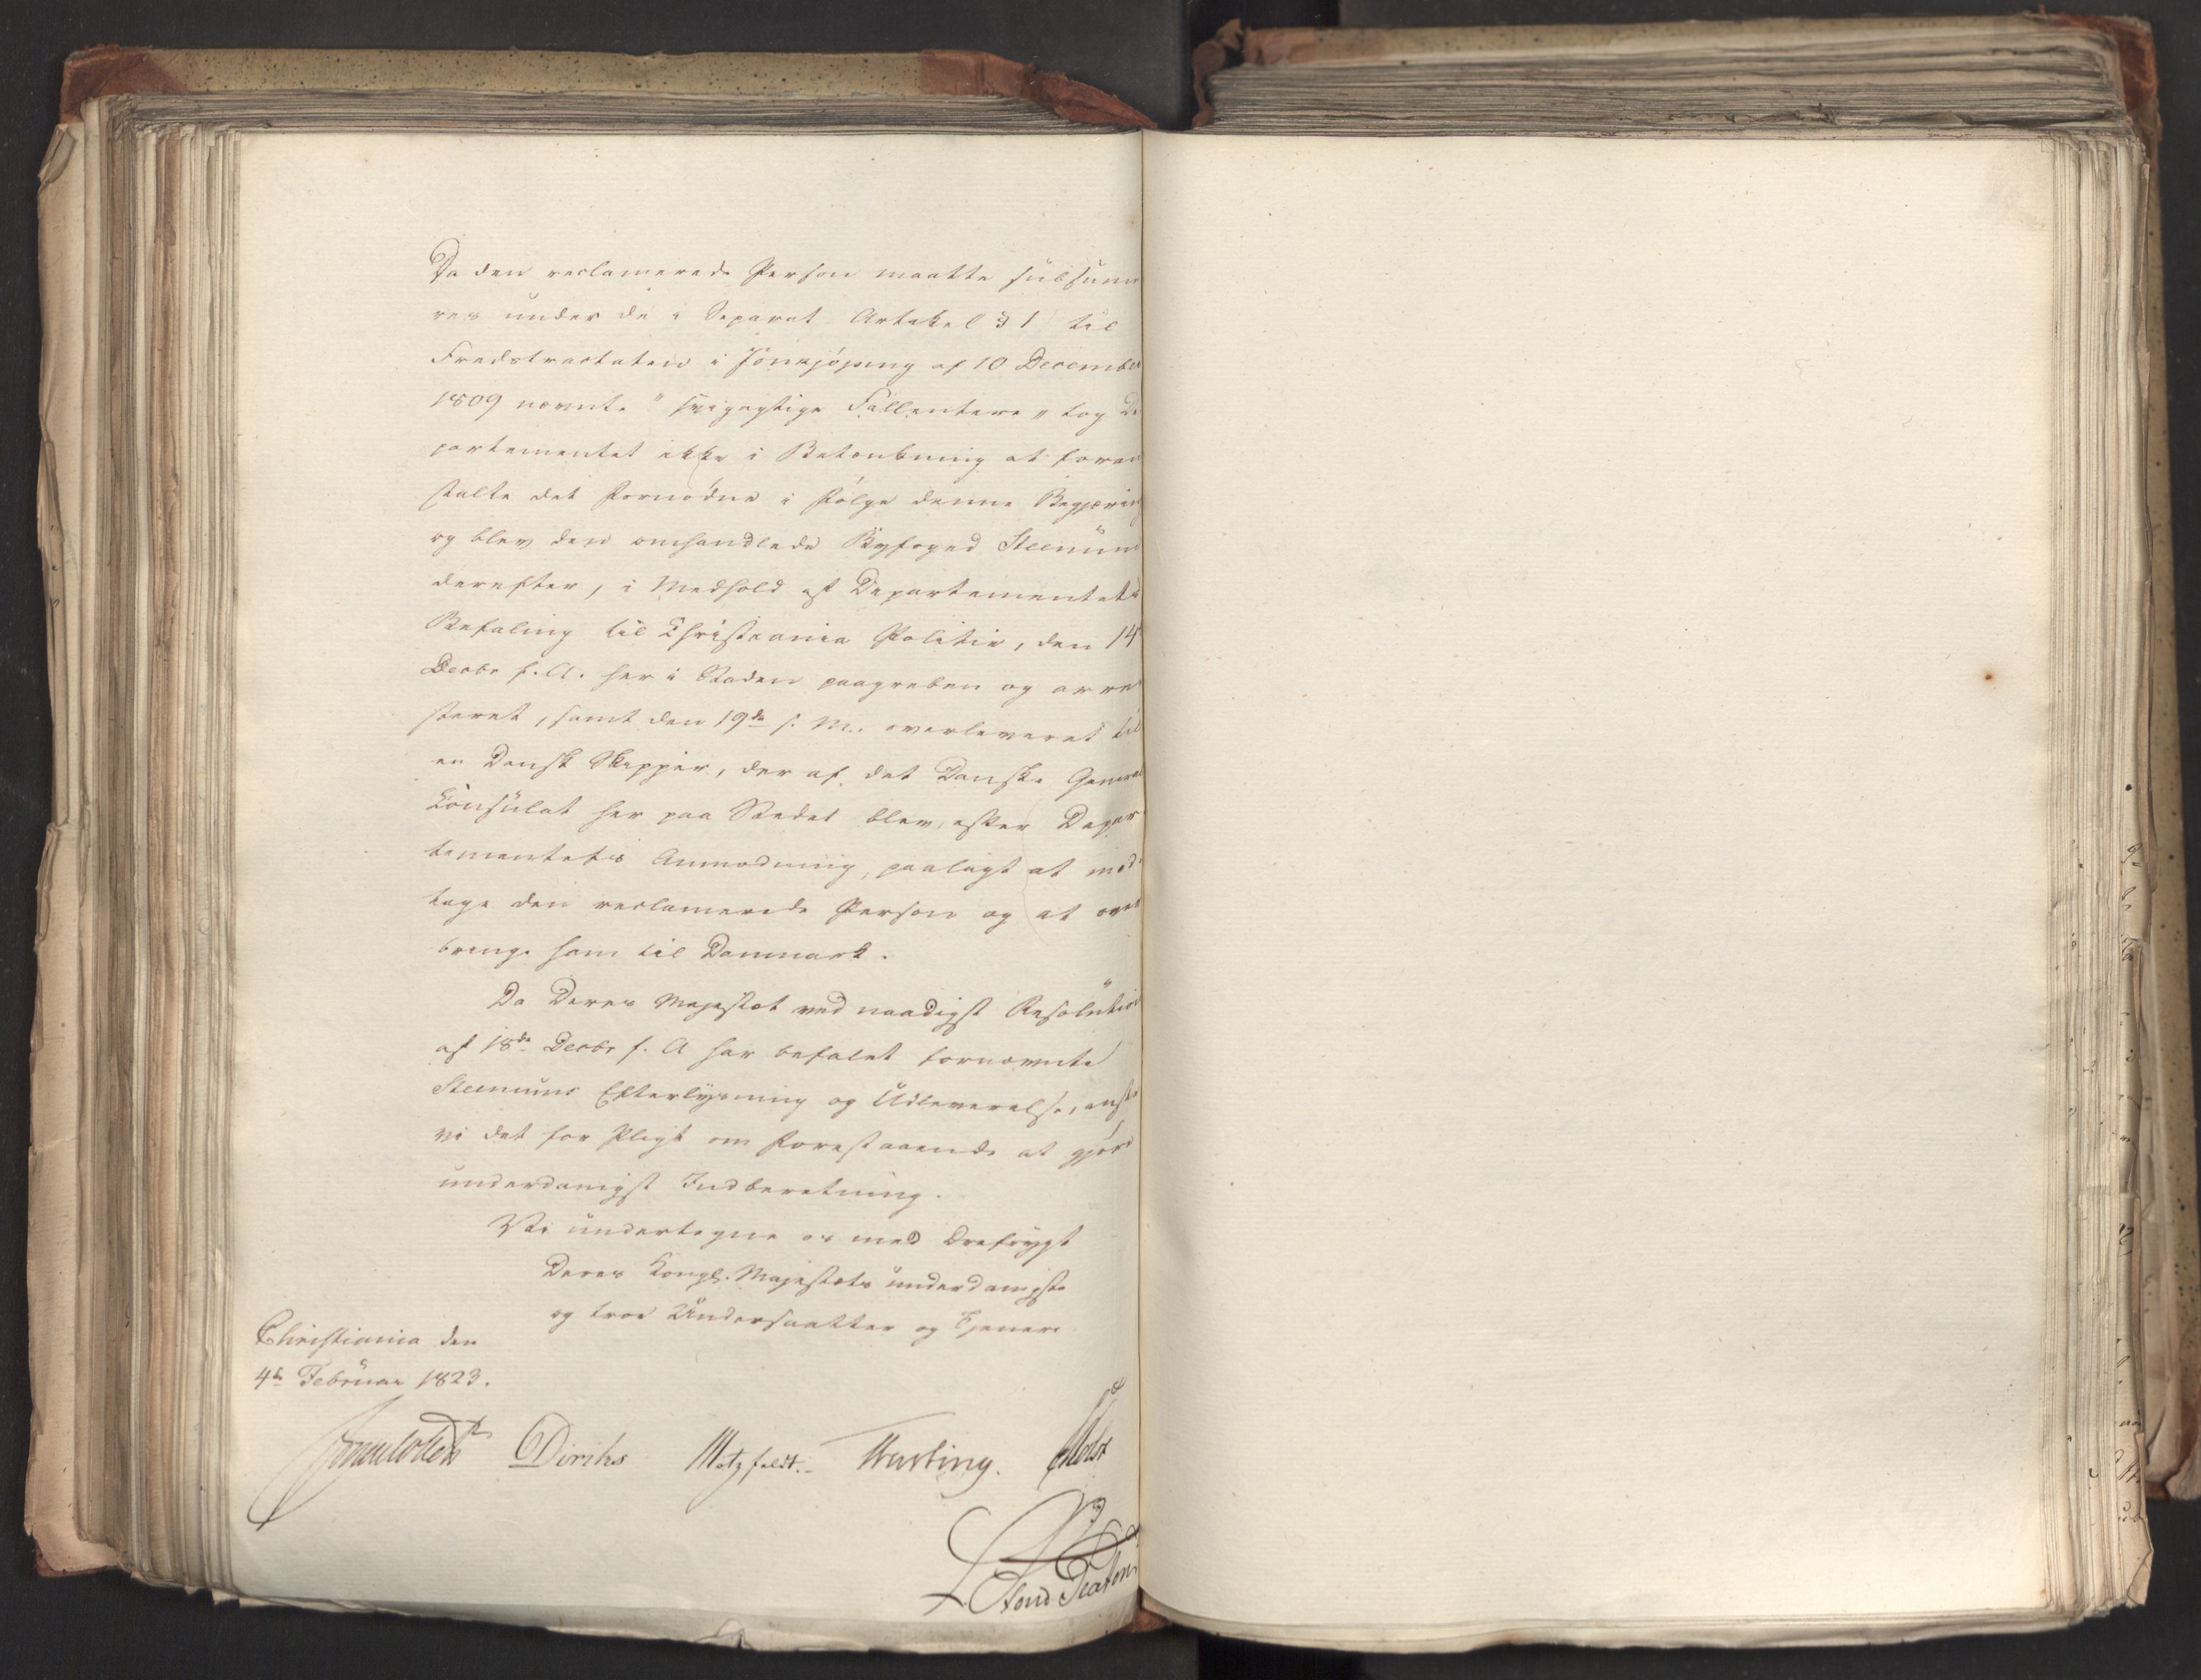 Da den reclamerede Person maatte subsume
res under de i Separat Artikel § 1 til
Fredstractaten i Jönkjöping af 10 December
1809 nævnte "svigagtige Fallentere" tog De
partementet ikke i Betænkning at foran
stalte det Fornødne i Følge denne Begjæring
og blev den omhandlede Byfoged Steenum
derefter, i Medhold af Departementets
Befaling til Christiania Politie, den 14
Decbr f. A. her i Staden paagreben og arre
steret, samt den 19de s. M. overleveret til
en Dansk Skipper, der af det Danske General
Consulat her paa Stedet blev, efter Depar
tementets Anmodning, paalagt at mod
tage den reclamerede Person og at over
bringe ham til Danmark.
Da Deres Majestæt ved naadigst Resolution
af 18de Decbr f. A har befalet fornævnte
Steenums Efterlysning og Udleverelse, ansee
vi det for Pligt om Forestaaende at gjøre
underdanigst Indberetning.
Vi undertegne os med Ærefrygt
Deres Kongl. Majestæts underdanigste
og troe Undersaatter og Tjenere
Christiania den
4de Februar 1823.
Sommerfeldt Diriks Motzfeldt. Krebting. Holst